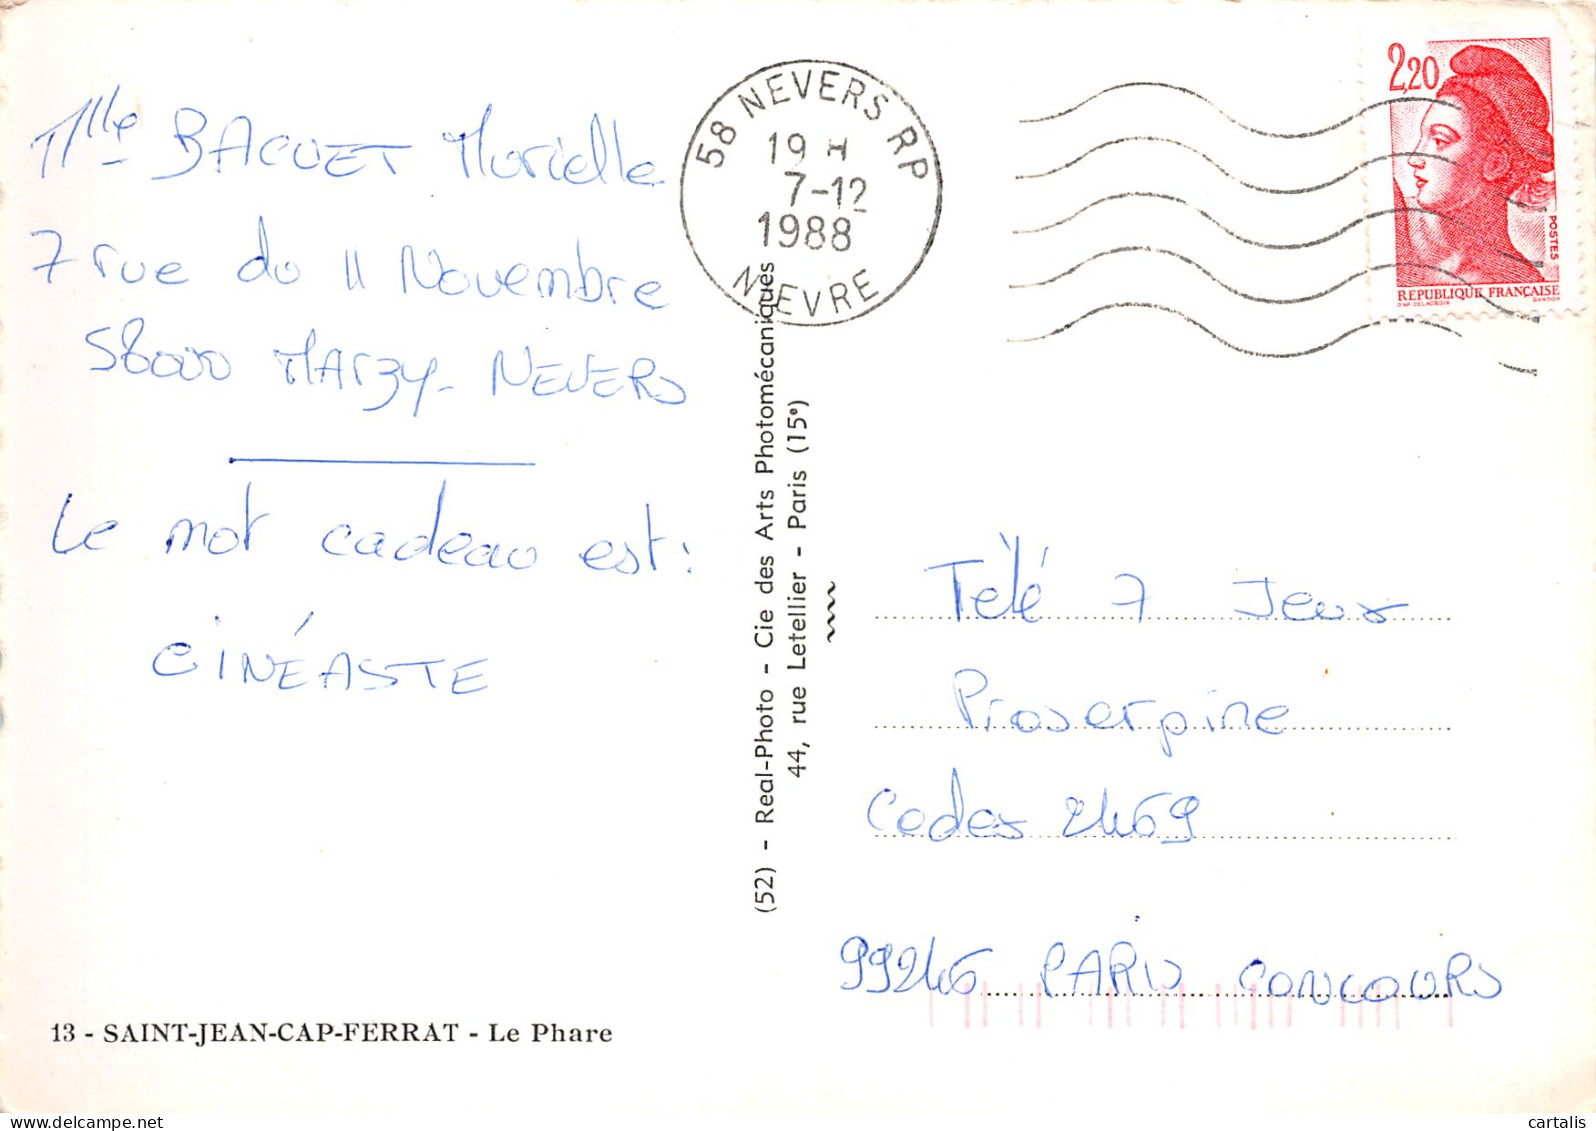 Mlle BACUET Murielle
7 rue du 11 Novembre
58000 MARZY - NEVERS
Le mot cadeau est :
CINÉASTE
13 - SAINT-JEAN-CAP-FERRAT - Le Phare
(52) - Real-Photo - Cie des Arts Photomécaniques
44, rue Letellier - Paris (15e)
58 NEVERS RP
19 H
7-12
1988
NIEVRE
2,20
POSTES
RÉPUBLIQUE FRANÇAISE
D'AP. DELACROIX GANDON
Télé 7 Jeux
Proserpine
Cedex 2469
99246 PARIS CONCOURS
cartalis